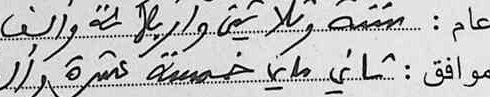 عام : ستة وثلاثين وأربعمائة وألف
موافق : ثاني ماي خمسة عشرة وأل